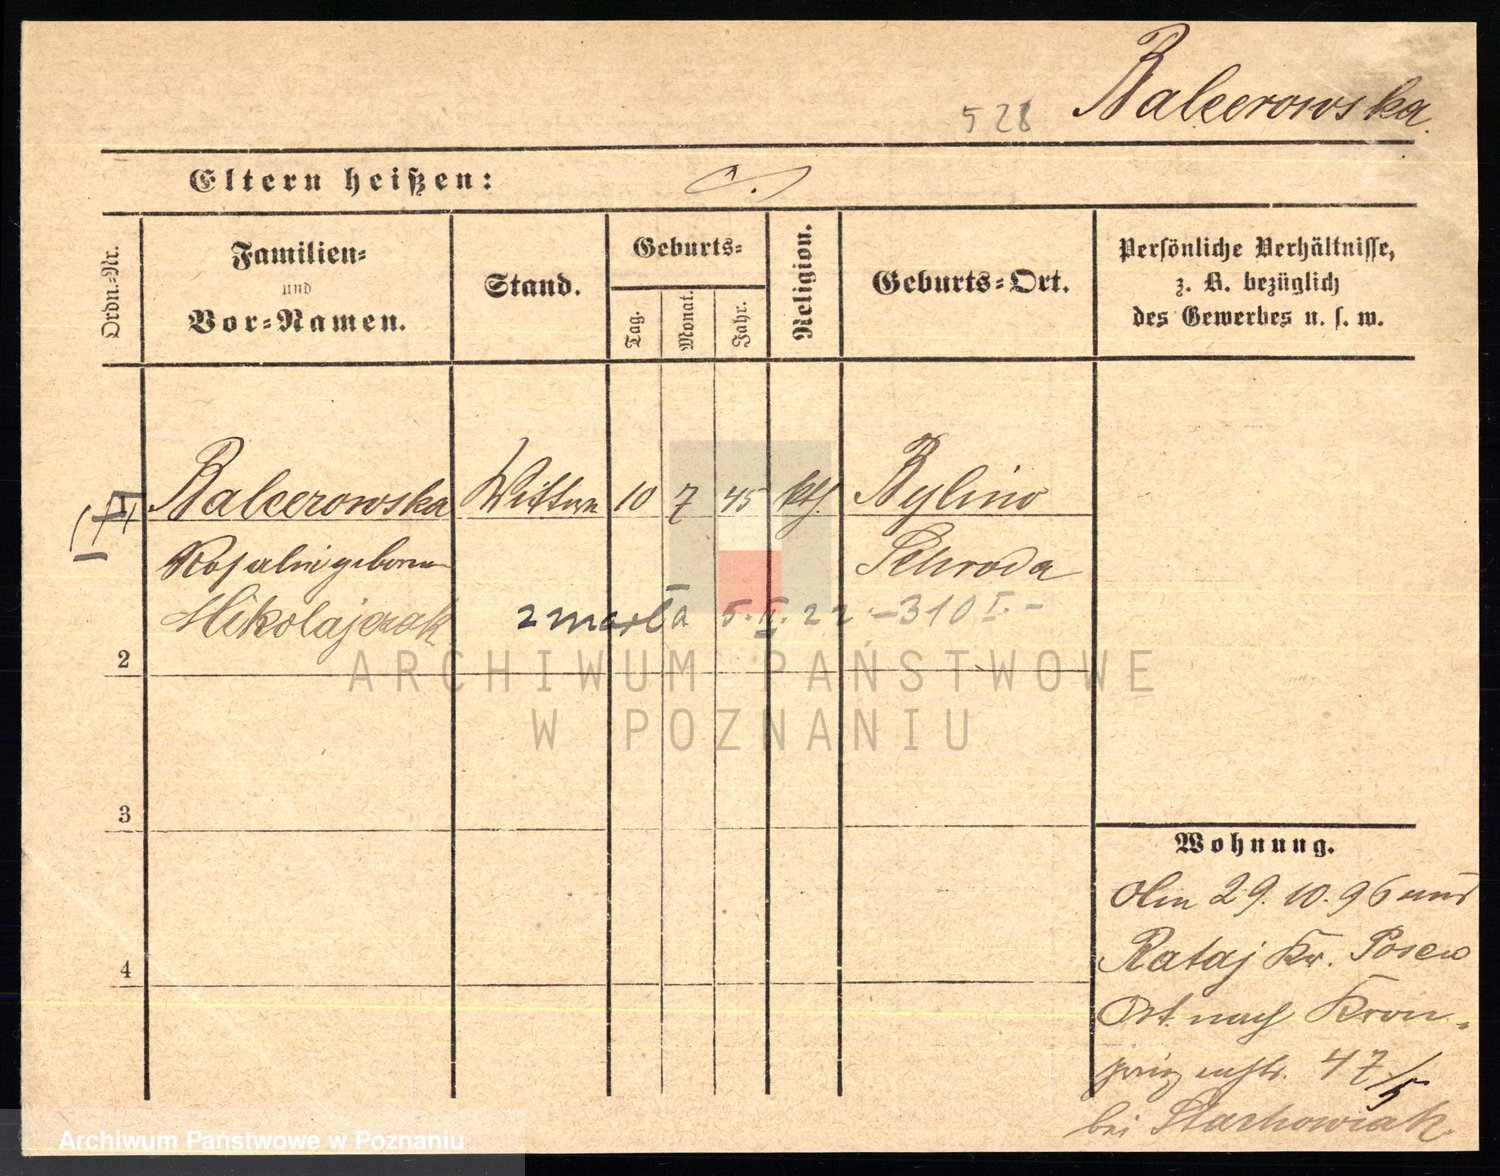 528 Balcerowska.
Eltern heißen:
Ordn.-Nr.
Familien-
und
Vor-Namen.
Stand.
Geburts-
Tag.
Monat.
Jahr.
Religion.
Geburts-Ort.
Persönliche Verhältnisse,
z. B. bezüglich
des Gewerbes u. s. w.
Balcerowska Wittwe 10 7 45 kth. Bylino
Rosalie geborne Schroda
Mikolajczak zmarła 5.II.22 – 310 I. –
2
ARCHIWUM PAŃSTWOWE
W POZNANIU
3
Wohnung.
Am 29.10.96 aus
4
Rataj Kr. Posen
Ort nach Kron-
prinzenstr. 47/5
bei Stachowiak.
Archiwum Państwowe w Poznaniu